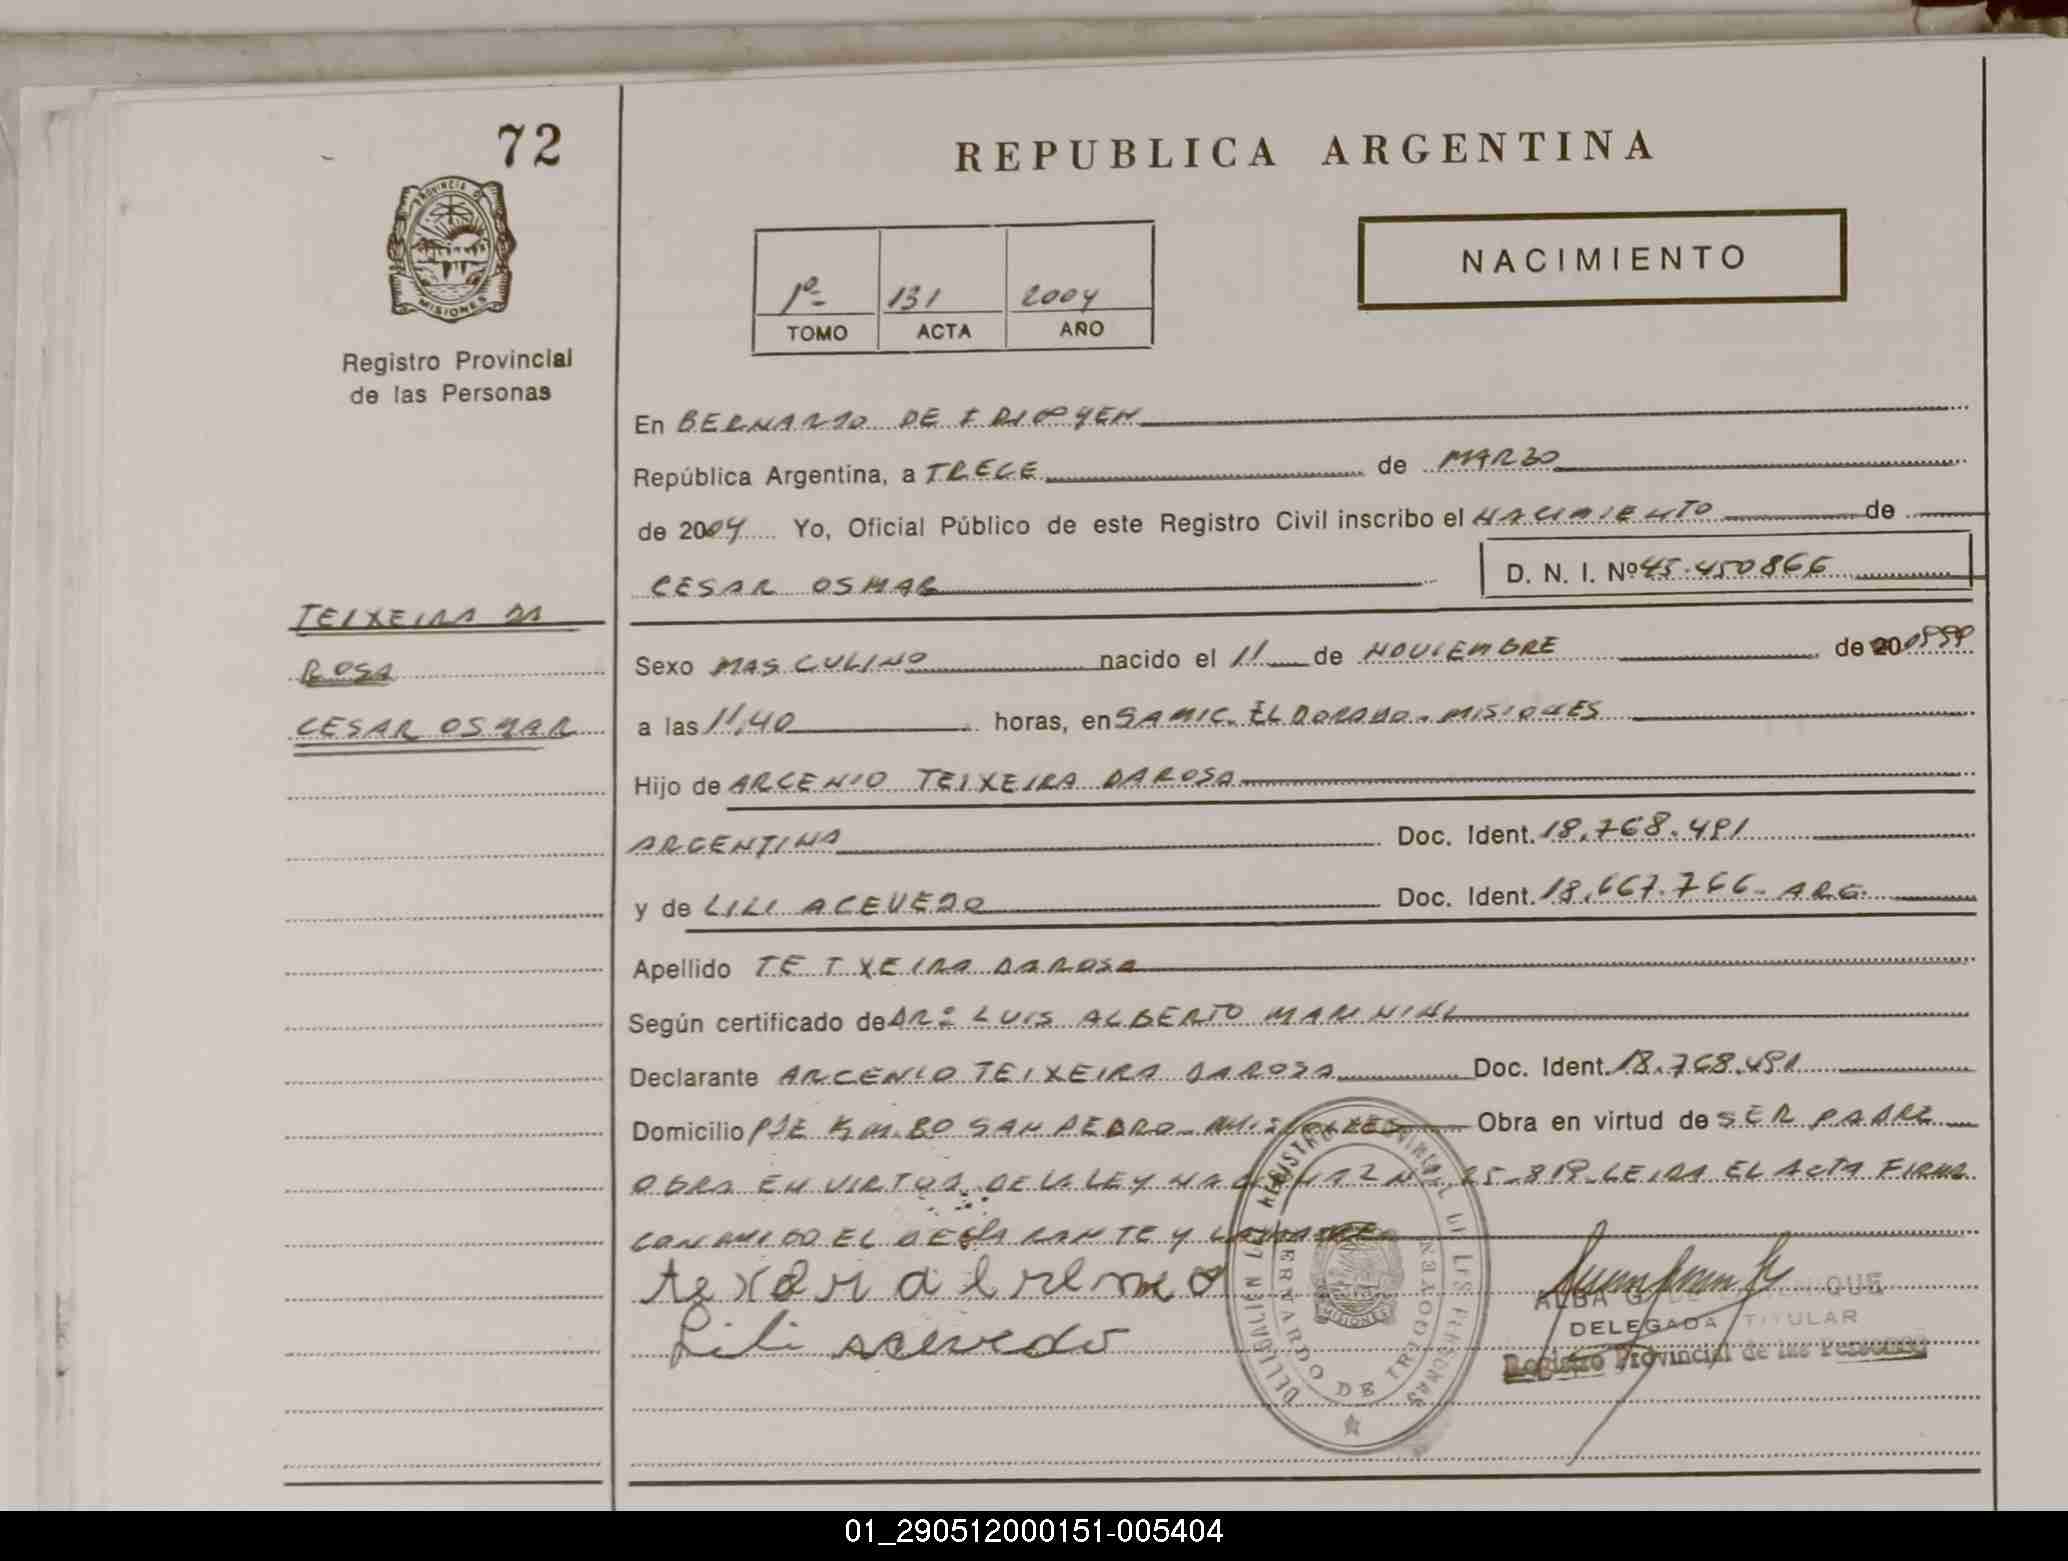 72
REPUBLICA ARGENTINA
PROVINCIA DE
MISIONES
NACIMIENTO
1º 131 2004
TOMO ACTA AÑO
Registro Provincial
de las Personas
En BERNARDO DE IRIGOYEN
República Argentina, a TRECE de MARZO
de 2004 Yo, Oficial Público de este Registro Civil inscribo el NACIMIENTO de
CESAR OSMAR D. N. I. Nº 45.450866
TEIXEIRA DA
ROSA
CESAR OSMAR
Sexo MASCULINO nacido el 11 de NOVIEMBRE de 20 1999
a las 11,40 horas, en SAMIC. ELDORADO. MISIONES
Hijo de ARCENIO TEIXEIRA DAROSA
ARGENTINA Doc. Ident. 18.768.491
y de LILI ACEVEDO Doc. Ident. 18.667.766 - ARG.
Apellido TEIXEIRA DAROSA
Según certificado de DR: LUIS ALBERTO
Declarante ARCENIO TEIXEIRA DAROSA Doc. Ident. 18.768.491
Domicilio PJE KM.80 SAN PEDRO - MISIONES Obra en virtud de SER PADRE
OBRA EN VIRTUD DE LA LEY NACIONAL Nº 25.819. LEIDA EL ACTA FIRMA
CONMIGO EL DECLARANTE Y LA MADRE
Lili acevedo
REGISTRO PROVINCIAL DE LAS PERSONAS
BERNARDO DE IRIGOYEN
MISIONES
ALBA G.
DELEGADA TITULAR
Registro Provincial de las Personas
01_290512000151-005404